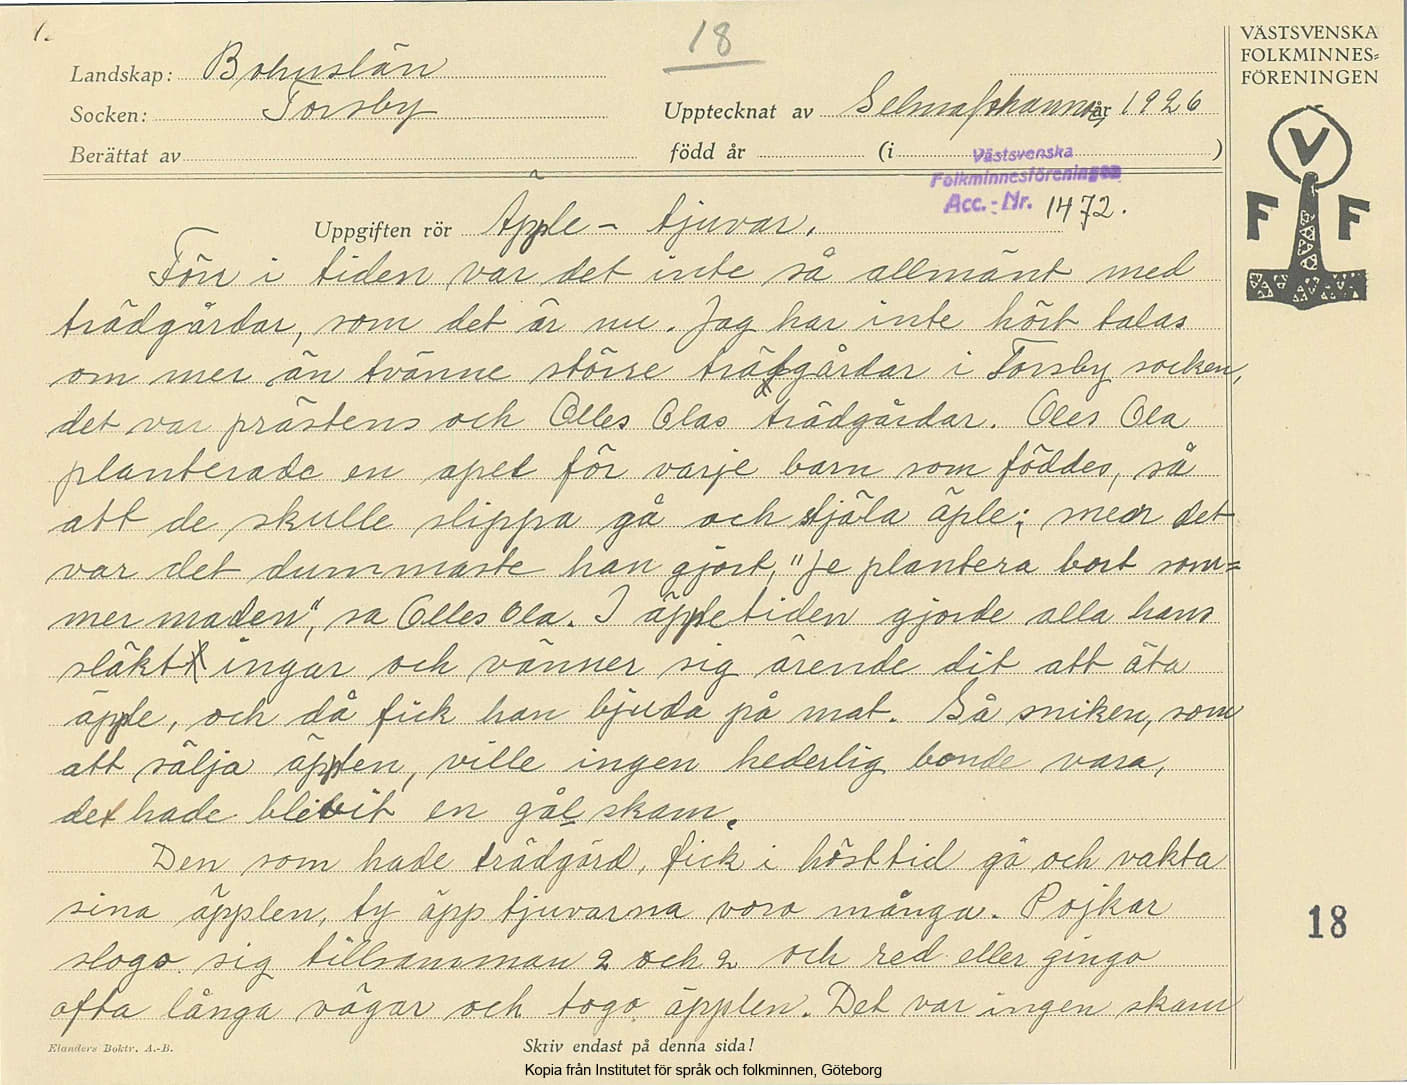 1.
18
VÄSTSVENSKA
FOLKMINNES=
FÖRENINGEN
Landskap: Bohuslän
Socken: Torsby
Upptecknat av Selma Johannes, år 1926
Berättat av
född år (i )
Västsvenska
Folkminnesföreningen
Acc.-Nr. 1472.
V
F F
Uppgiften rör Äpple- tjuvar.
Förr i tiden var det inte så allmänt med
trädgårdar, som det är nu. Jag har inte hört talas
om mer än tvänne större trädgårdar i Torsby socken,
det var prästens och Olles Olas trädgårdar. Oles Ola
planterade en apel för varje barn som föddes, så
att de skulle slippa gå och stjäla äple; men det
var det dummaste han gjort, "Je plantera bort som=
mer maden", sa Olles Ola. I äppletiden gjorde alla hans
släktingar och vänner sig ärende dit att äta
äpple, och då fick han bjuda på mat. Så sniken, som
att sälja äpplen, ville ingen hederlig bonde vara,
det hade blivit en gål skam.
Den som hade trädgård, fick i hösttid gå och vakta
sina äpplen, ty äpptjuvarna voro många. Pojkar
slogo sig tillsamman 2 och 2 och red eller gingo
ofta långa vägar och togo äpplen. Det var ingen skam
18
Elanders Boktr. A.-B.
Skriv endast på denna sida!
Kopia från Institutet för språk och folkminnen, Göteborg